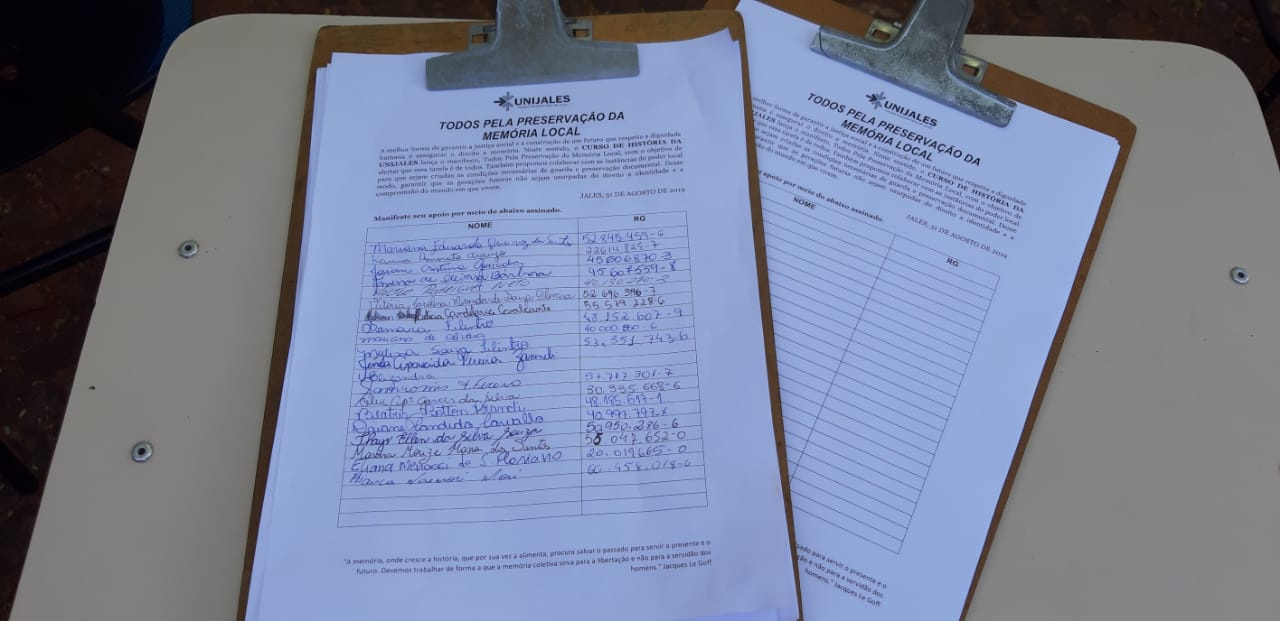 UNIJALES
TODOS PELA PRESERVAÇÃO DA
MEMÓRIA LOCAL
A melhor forma de garantir a justiça social e a construção de um futuro que respeite a dignidade
humana é assegurar o direito a memória. Neste sentido, o CURSO DE HISTÓRIA DA
UNIJALES lança o manifesto, Todos Pela Preservação da Memória Local, com o objetivo de
alertar que essa tarefa é de todos. Também propomos colaborar com as instâncias do poder local
para que sejam criadas as condições necessárias de guarda e preservação documental. Desse
modo, garantir que as gerações futuras não sejam usurpadas do direito a identidade e a
compreensão do mundo em que vivem.
JALES, 31 DE AGOSTO DE 2019
Manifeste seu apoio por meio do abaixo assinado.
NOME RG
Mariana Eduarda Queiroz dos Santos 52.845.459-6
22614825-7
Cristina 45606870-3
de Oliveira Barbosa 45.607559-8
Rodrigues Neto
Vitória Carolina Miranda de Souza Oliveira 52 696 396-7
Candelaria Cavalcante 55 579 228-6
Filintro 48.152.607-9
mariana de 40 000 860-6
Souza Filintro 53.351 743.6
Aparecida Pereira
57.717 301-7
30.335.668-6
Celia Ap. Garcia da Silva 48.185.617-1
Beatriz 40.997.797.x
Daiane Candido Carvalho 50950.286-6
Thays Ellen da Silva Souza 55.047.652-0
Maria dos Santos 20.019665-0
Eliana de S. Floriano 60.458.018-6
"A memória, onde cresce a história, que por sua vez a alimenta, procura salvar o passado para servir o presente e o
futuro. Devemos trabalhar de forma a que a memória coletiva sirva para a libertação e não para a servidão dos
homens." Jacques Le Goff
UNIJALES
TODOS PELA PRESERVAÇÃO DA
MEMÓRIA LOCAL
melhor forma de garantir a justiça social e a construção de um futuro que respeite a dignidade
assegurar o direito a memória. Neste sentido, o CURSO DE HISTÓRIA DA
lança o manifesto, Todos Pela Preservação da Memória Local, com o objetivo de
que essa tarefa é de todos. Também propomos colaborar com as instâncias do poder local
sejam criadas as condições necessárias de guarda e preservação documental. Desse
que as gerações futuras não sejam usurpadas do direito a identidade e a
do mundo em que vivem.
JALES, 31 DE AGOSTO DE 2019
apoio por meio do abaixo assinado.
NOME RG
passado para servir o presente e o
e não para a servidão dos
homens." Jacques Le Goff